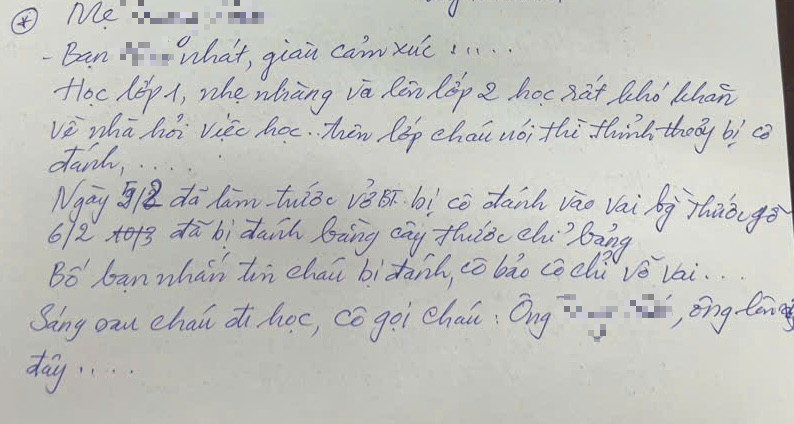 * Mẹ
- Bạn nhát, giàu cảm xúc : ....
Học lớp 1, nhẹ nhàng và lên lớp 2 học rất khó khăn
về nhà hỏi việc học.. trên lớp cháu nói thì thỉnh thoảng bị cô
đánh, ....
Ngày 5/2 đã làm trước vở BT. bị cô đánh vào vai bg thước gỗ
6/2 đã bị đánh bằng cây thước chỉ bảng
Bố bạn nhắn tin cháu bị đánh, cô bảo cô chỉ vỗ vai...
Sáng sau cháu đi học, cô gọi cháu : Ông , ông lên
đây .....